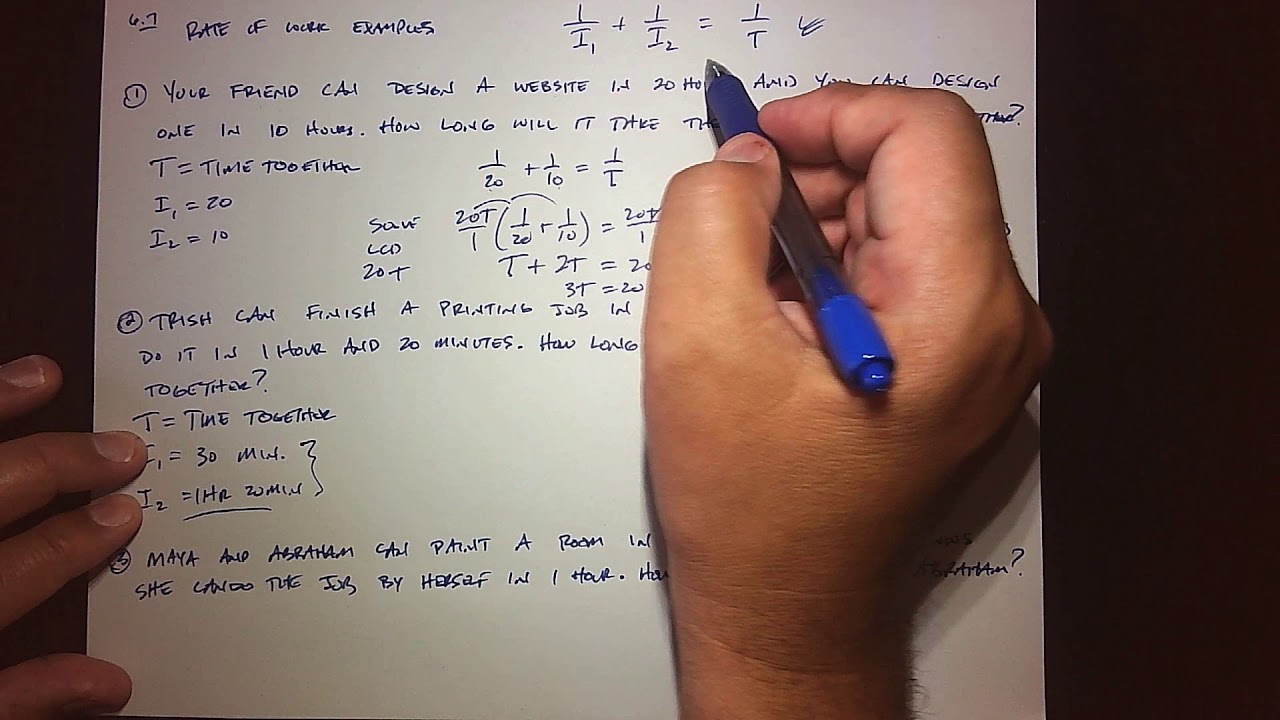 6.7 RATE OF WORK EXAMPLES
1/I₁ + 1/I₂ = 1/T
① YOUR FRIEND CAN DESIGN A WEBSITE IN 20 HO AND YOU CAN DESIGN
ONE IN 10 HOURS. HOW LONG WILL IT TAKE
T = TIME TOGETHER
1/20 + 1/10 = 1/T
I₁ = 20
I₂ = 10
SOLVE 20T/1 (1/20 + 1/10) = 20T/1
LCD
20T
T + 2T = 20
3T = 20
② TRISH CAN FINISH A PRINTING JOB IN
DO IT IN 1 HOUR AND 20 MINUTES. HOW LONG
TOGETHER?
T = TIME TOGETHER
I₁ = 30 MIN.
I₂ = 1HR 20MIN
③ MAYA AND ABRAHAM CAN PAINT A ROOM IN
SHE CAN DO THE JOB BY HERSELF IN 1 HOUR. ABRAHAM?